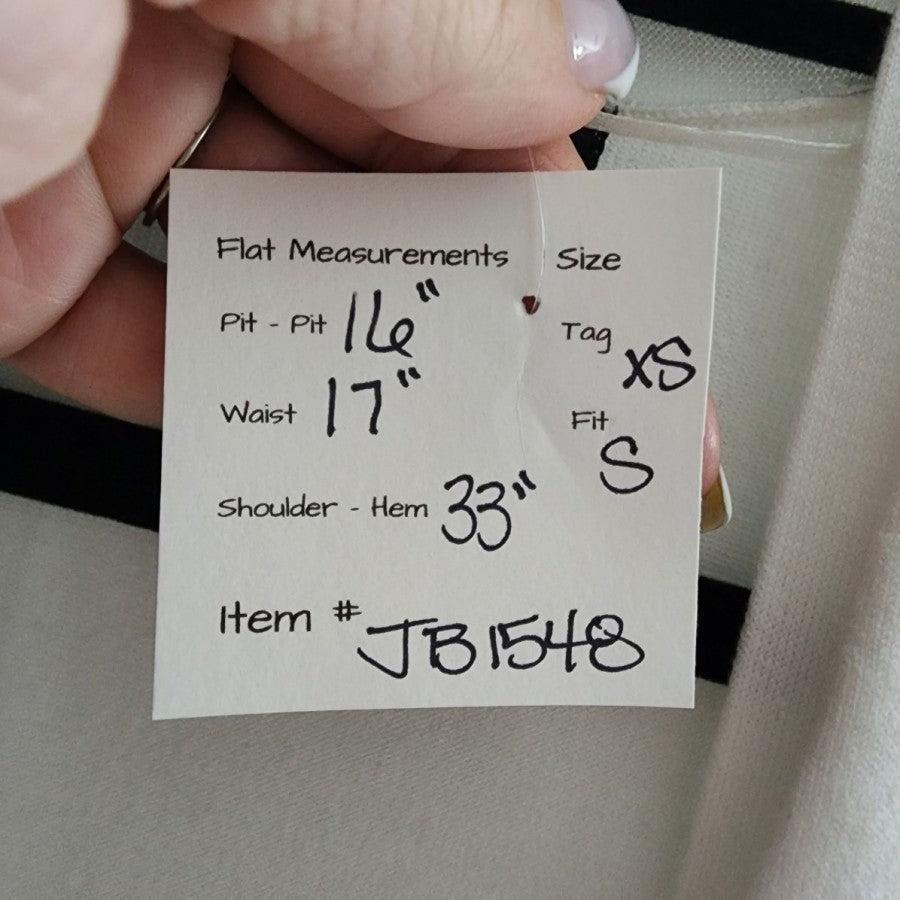 Flat Measurements
Pit - Pit 16"
Waist 17"
Shoulder - Hem 33"
Item # JB1548
Size
Tag XS
Fit S